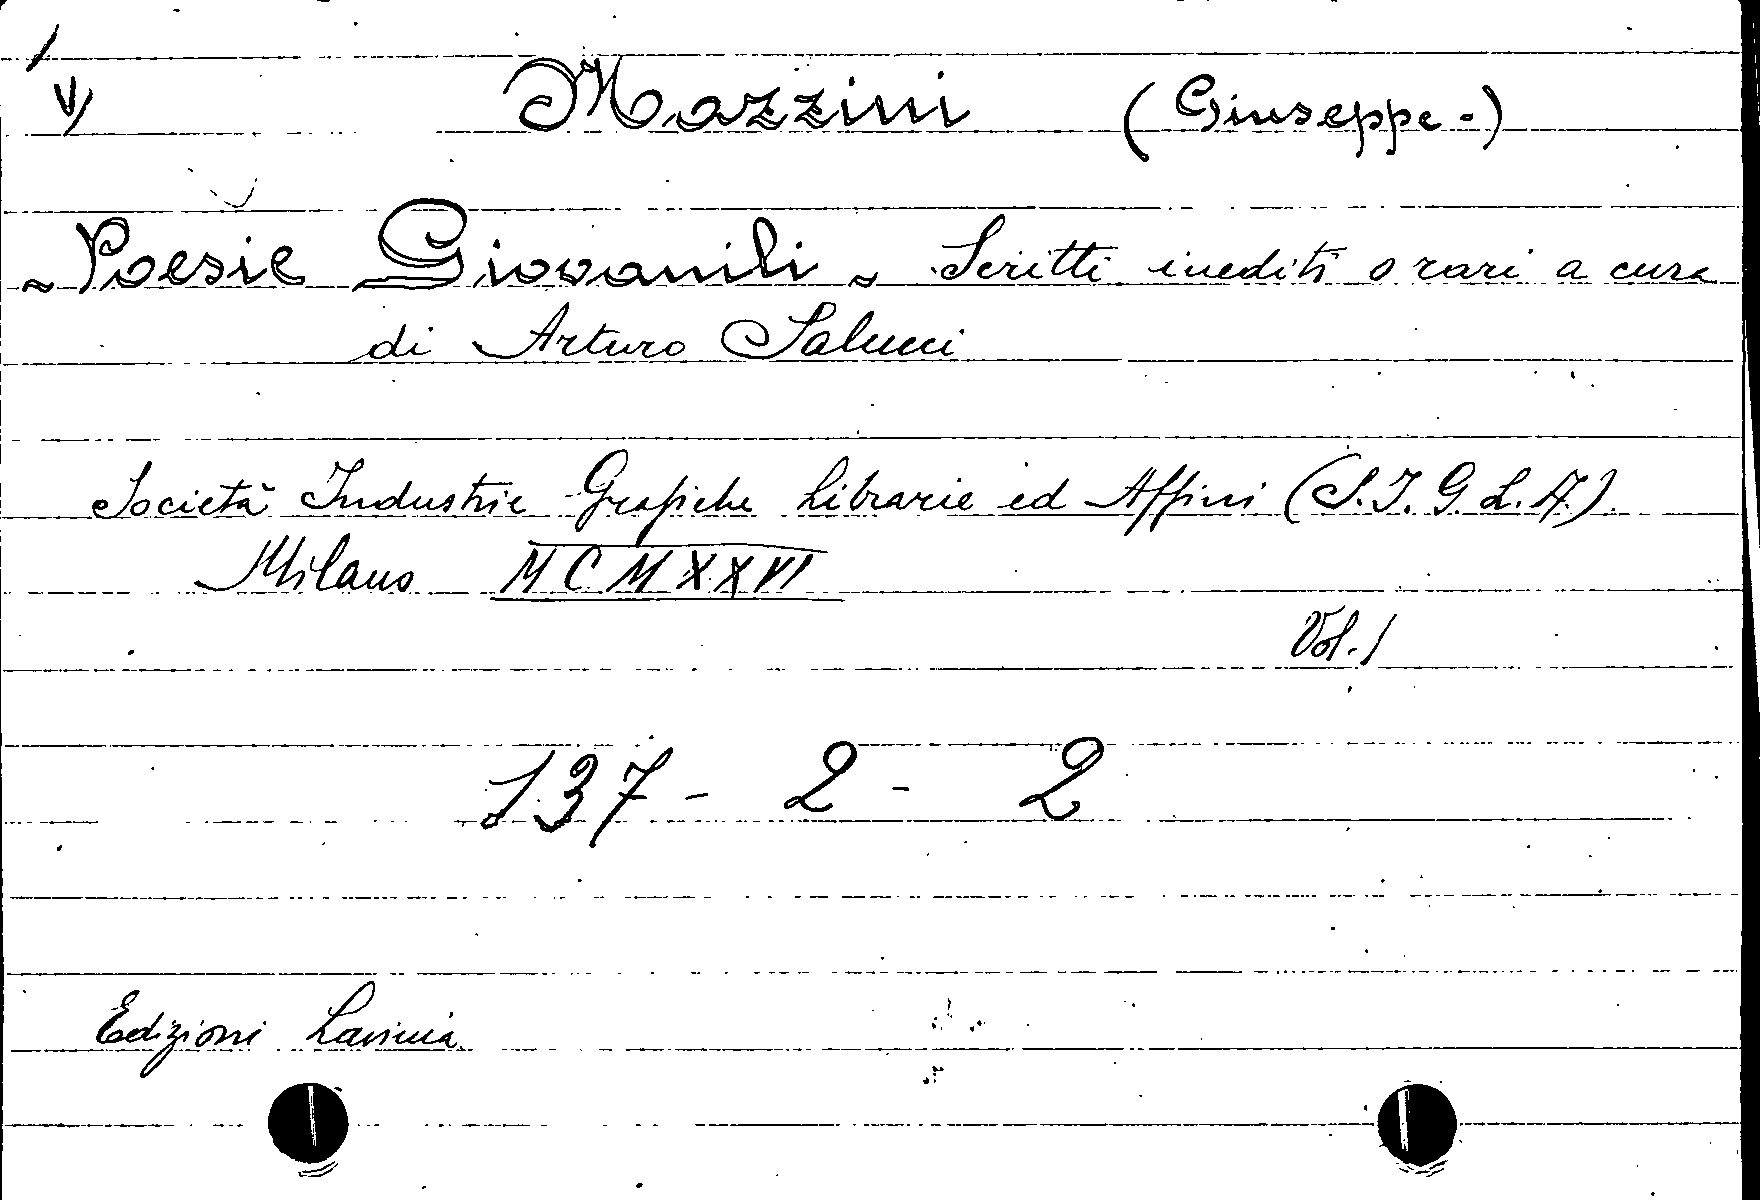 Mazzini (Giuseppe -)
~ Poesie Giovanili ~ Scritti inediti o rari a cura
di Arturo Salucci
Società Industrie Grafiche Librarie ed Affini (S.I.G.L.A.)
Milano MCMXXVI
Vol. 1
137 - 2 - 2
Edizioni Lavinia